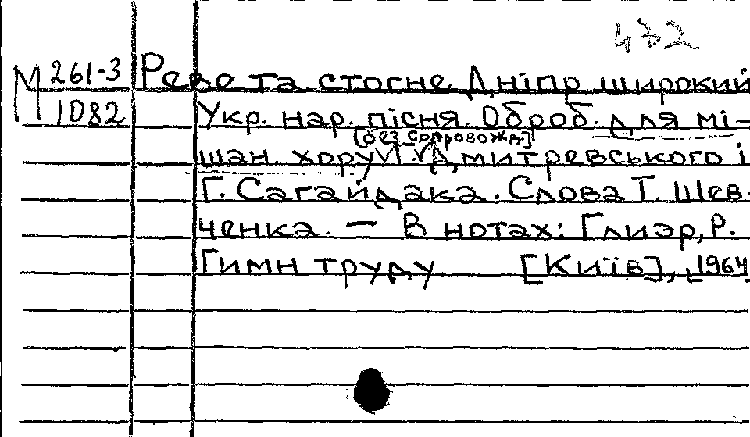 432
М 261-3
1082
Реве та стогне Дніпр широкий
Укр. нар. пісня. Оброб. для мі-
[без сопровожд]
шан. хору Дмитревського і
Г. Сагайдака. Слова Т. Шев-
ченка. — В нотах: Глиэр, Р.
Гимн труду [Київ], 1964